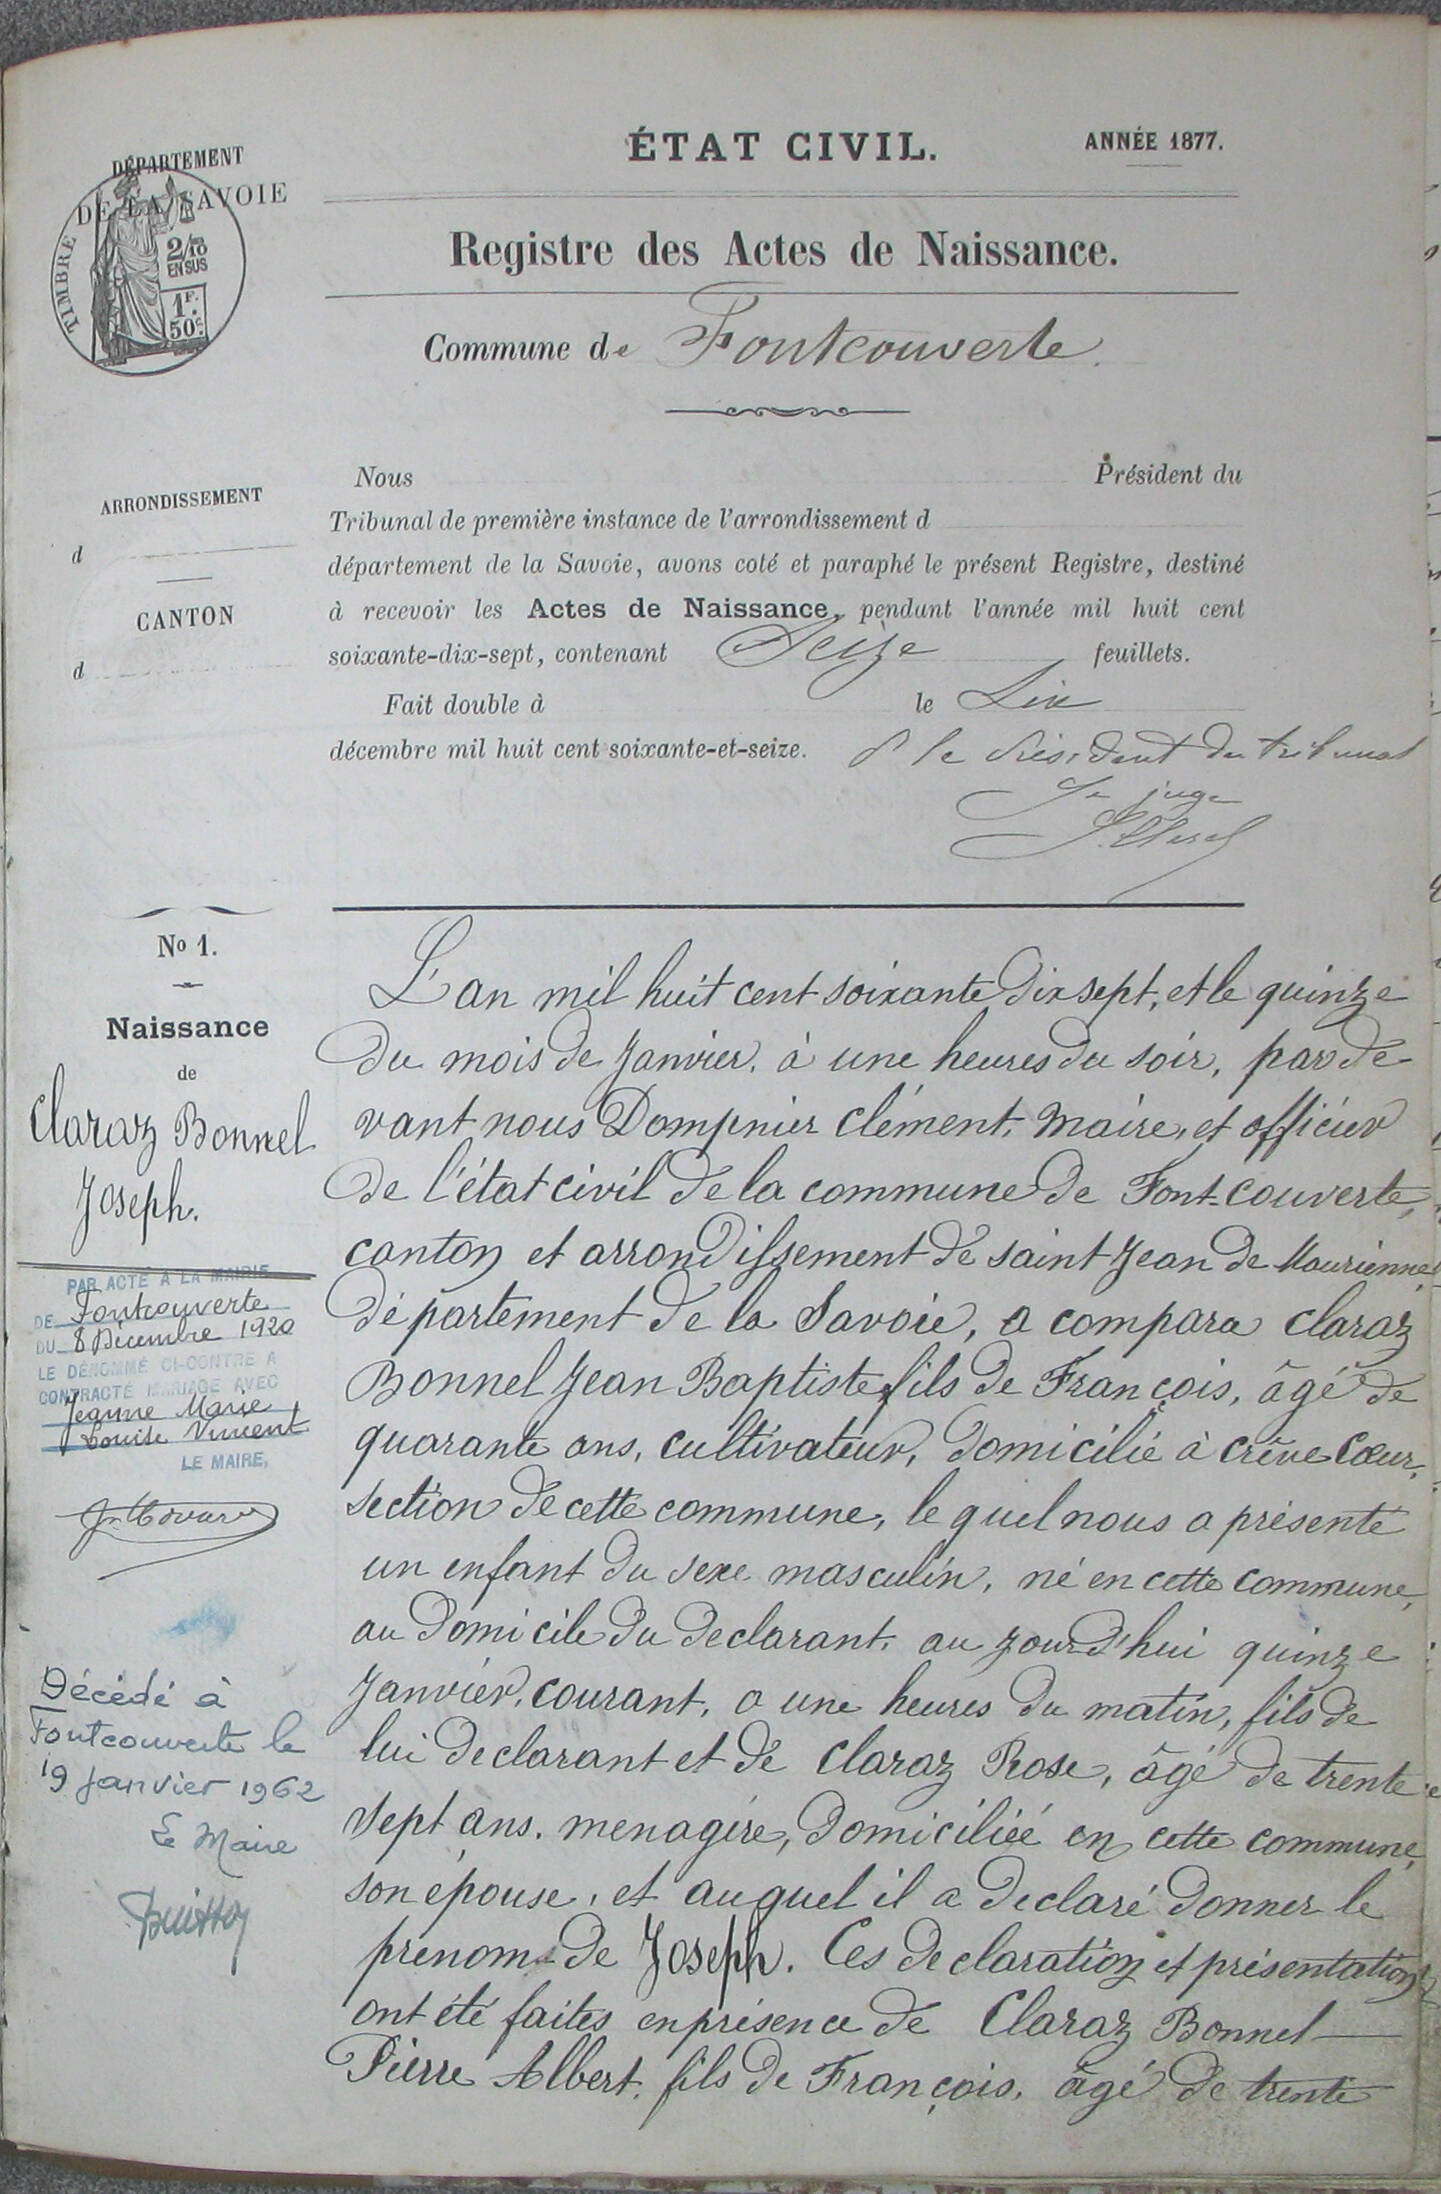 DÉPARTEMENT
DE LA SAVOIE
TIMBRE
2/10
EN SUS
1F.
50c.
ÉTAT CIVIL.
ANNÉE 1877.
Registre des Actes de Naissance.
Commune de Fontcouverte
ARRONDISSEMENT
d
CANTON
d
Nous Président du
Tribunal de première instance de l'arrondissement d
département de la Savoie, avons coté et paraphé le présent Registre, destiné
à recevoir les Actes de Naissance, pendant l'année mil huit cent
soixante-dix-sept, contenant Seize feuillets.
Fait double à le Dix
décembre mil huit cent soixante-et-seize.
P le Président du tribunal
Le juge
No 1.
Naissance
de
Claraz Bonnel
Joseph.
PAR ACTE A LA MAIRIE
DE Fontcouverte
DU 8 Décembre 1920
LE DÉNOMMÉ CI-CONTRE A
CONTRACTÉ MARIAGE AVEC
Jeanne Marie
Louise Vincent
LE MAIRE,
Décédé à
Fontcouverte le
19 janvier 1962
Le Maire
L'an mil huit cent soixante dix sept, et le quinze
du mois de Janvier. à une heures du soir, par de
vant nous Dompnier Clément, Maire, et officier
de l'état civil de la commune de Font-couverte,
canton et arrondissement de saint Jean de Maurienne
département de la Savoie, a comparu Claraz
Bonnel Jean Baptiste, fils de François, âgé de
quarante ans, cultivateur, domicilié à crêve Cœur,
section de cette commune, le quel nous a présenté
un enfant du sexe masculin, né en cette commune,
au domicile du declarant, au jourd'hui quinze
Janvier, courant, a une heures du matin, fils de
lui declarant et de Claraz Rose, âgé de trente
sept ans. menagère, domiciliée en cette commune,
son épouse, et auquel il a declaré donner le
prenom de Joseph. Ces declaration et présentation
ont été faites en présence de Claraz Bonnel
Pierre Albert, fils de François, âgé de trente